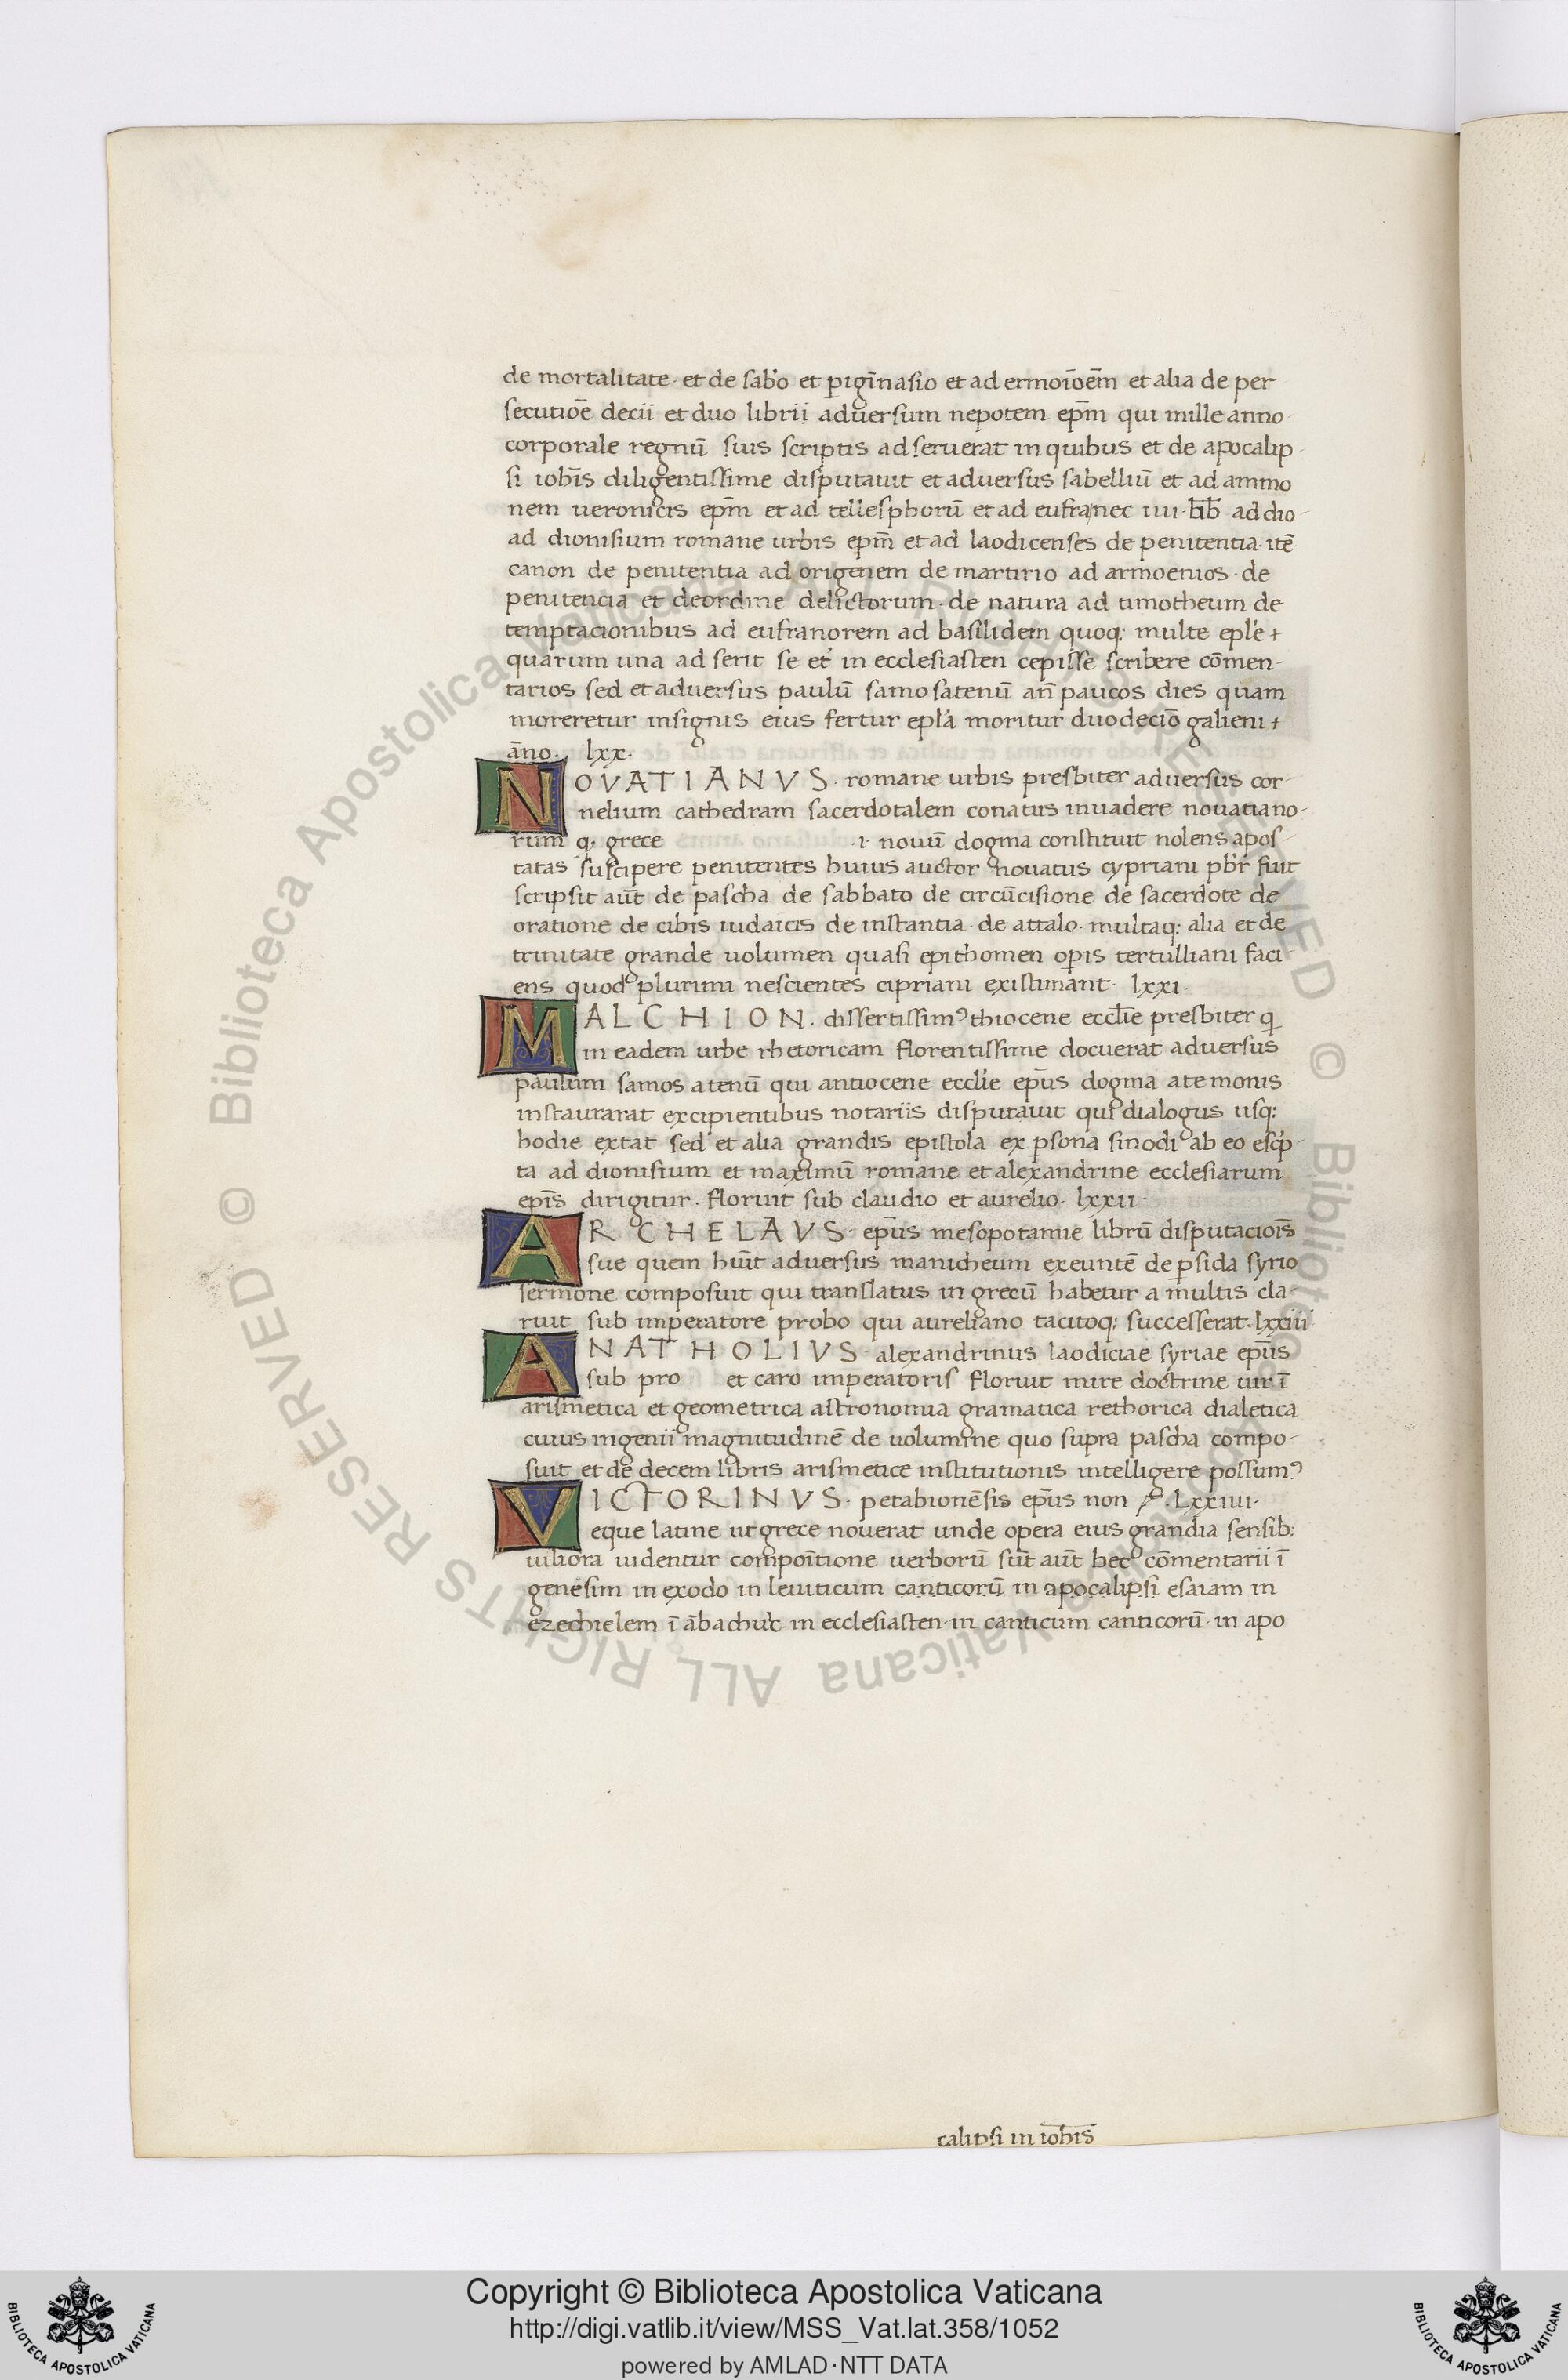 de mortalitate· et de sab̃o et ꝑigĩnasio et ad ermoiõem̃ et alia de per
secutiõe decii et duo librii aduersum nepotem ep̃m qui mille anno-
corporale regnũ suis scriptis adseruerat in quibus et de apocalip-
si ioh̃is diligentissime disputauit et aduersus sabelliũ et ad ammo
nem ueronicis ep̃m et ad tellesphorũ et ad eufranec iiii· lib̃ ad dio-
ad dionisium romane urbis ep̃m et ad laodicenses de penitentia· itẽ
canon de penitentia ad origenem de martirio ad armoenios· de
penitencia et de ordine delictorum· de natura ad timotheum de
temptacionibus ad eufranorem ad basilidem quoq; multe epl̃e +
quarum una adserit se et in ecclesiasten cepisse scribere cõmen-
tarios sed et aduersus paulũ samosatenũ añ paucos dies quam
moreretur insignis eius fertur epl̃a moritur duodeciõ galieni +
ãno· lxx·
NOVATIANVS· romane urbis presbiter aduersus cor-
nelium cathedram sacerdotalem conatus inuadere nouatiano-
rum q, grece ·i· nouũ dogma constituit nolens apos-
tatas suscipere penitentes huius auctor nouatus cypriani pb̃r fuit
scripsit aũt de pascha de sabbato de circũcisione de sacerdote de
oratione de cibis iudaicis de instantia· de attalo· multaq; alia et de
trinitate grande uolumen quasi epithomen oꝑis tertulliani faci-
ens quod plurimi nescientes cipriani existimant· lxxi·
MALCHION. dissertissimꝰ thiocene eccl̃ie presbiter q̃
in eadem urbe rhetoricam florentissime docuerat aduersus
paulum samosatenũ qui antiocene eccl̃ie ep̃us dogma atemonis
instaurarat excipientibus notariis disputauit qui dialogus usq;
hodie extat sed et alia grandis epistola ex ꝑsona sinodi ab eo escp̃-
ta ad dionisium et maximũ romane et alexandrine ecclesiarum
ep̃is dirigitur· floruit sub claudio et aurelio· lxxii·
ARCHELAVS· ep̃us mesopotamie librũ disputacioĩs
sue quem hũit aduersus manicheum exeuntẽ de ꝑsida syrio
sermone composuit qui translatus in grecũ habetur a multis cla-
ruit sub imperatore probo qui aureliano tacitoq; successerat· lxxiii
ANATHOLIVS· alexandrinus laodiciae syriae ep̃us
sub pro et caro imperatoris floruit mire doctrine uir ĩ
arismetica et geometrica astronomia gramatica rethorica dialetica
cuius ingenii magnitudinẽ de uolumine quo supra pascha compo-
suit et de decem libris arismetice institutionis intelligere possumꝰ
VICTORINVS· petabionẽsis ep̃us non · Lxxiiii·
eque latine ut grece nouerat unde opera eius grandia sensib;
uiliora uidentur compoĩtione uerborũ sũt aũt hec cõmentarii ĩ
genesim in exodo in leuiticum canticorũ in apocalipsi esaiam in
ezechielem ĩ ãbachuc in ecclesiasten· in canticum canticorũ· in apo
calipsi in ioh̃is
Copyright © Biblioteca Apostolica Vaticana
http://digi.vatlib.it/view/MSS_Vat.lat.358/1052
powered by AMLAD·NTT DATA